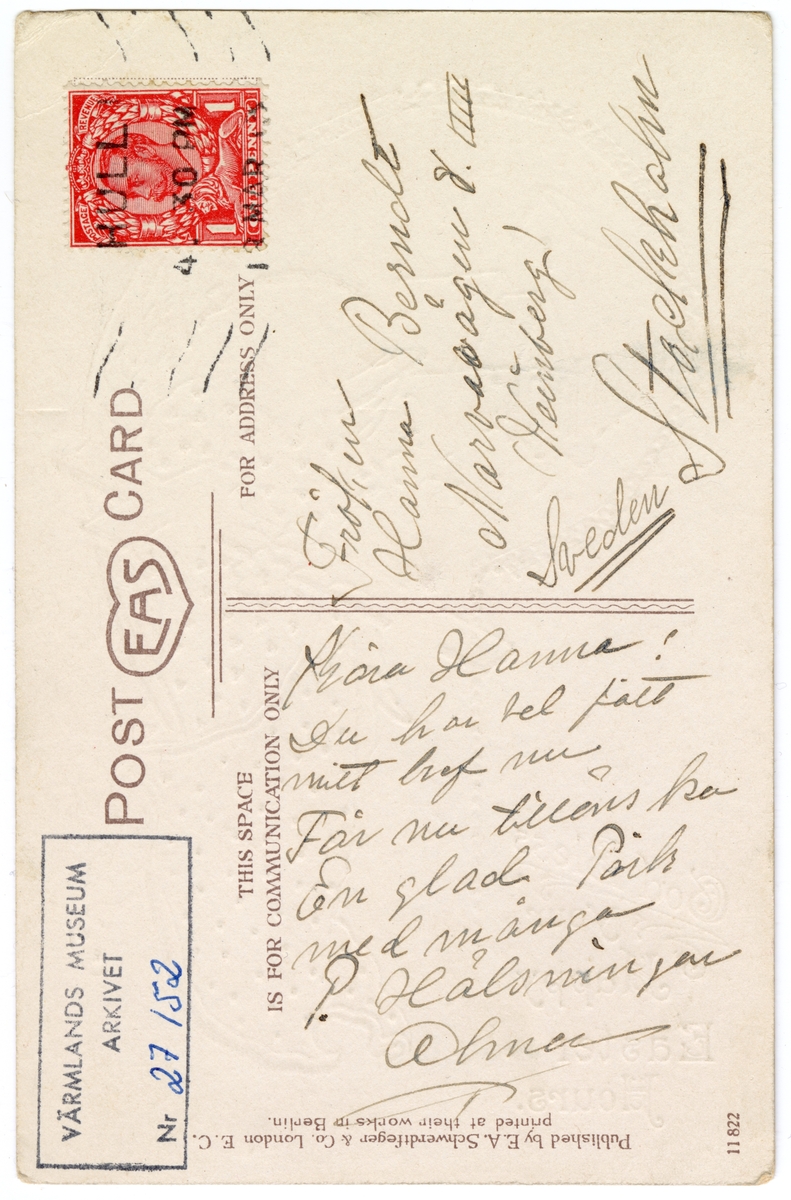 POST CARD
EAS
THIS SPACE
IS FOR COMMUNICATION ONLY
FOR ADDRESS ONLY
POSTAGE
REVENUE
1 PENNY 1
HULL
4 30 PM
MAR
VÄRMLANDS MUSEUM
ARKIVET
Nr 27/52
Kära Hanna!
Du har väl fått
mitt bref nu
Får nu tillönska
En glad Påsk
med många
Hälsningar
Fröken
Hanna Berndt
Narvavägen 8. IIII
Stockholm
Sveden
Published by E.A. Schwerdtfeger & Co. London E.C.
printed at their works in Berlin.
11822